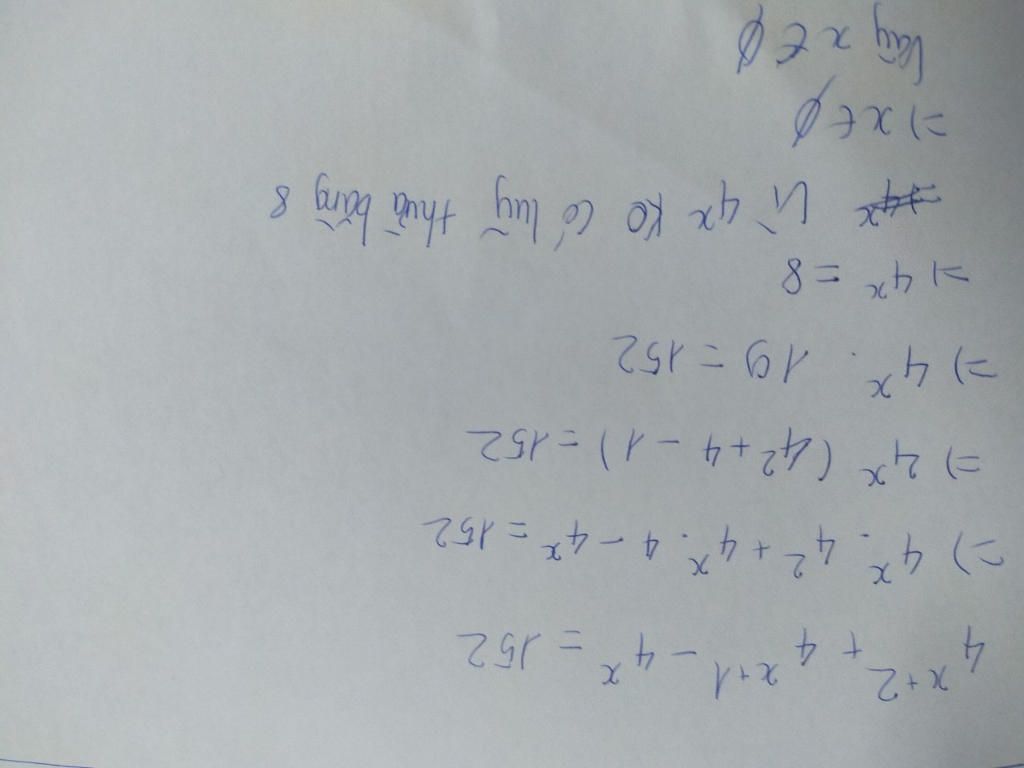 4ˣ⁺² + 4ˣ⁺¹ - 4ˣ = 152
=) 4ˣ . 4² + 4ˣ . 4 - 4ˣ = 152
=) 4ˣ (4² + 4 - 1) = 152
=) 4ˣ . 19 = 152
=) 4ˣ = 8
Vì 4ˣ ko có luỹ thừa bằng 8
=) x ∈ ∅
Vậy x ∈ ∅